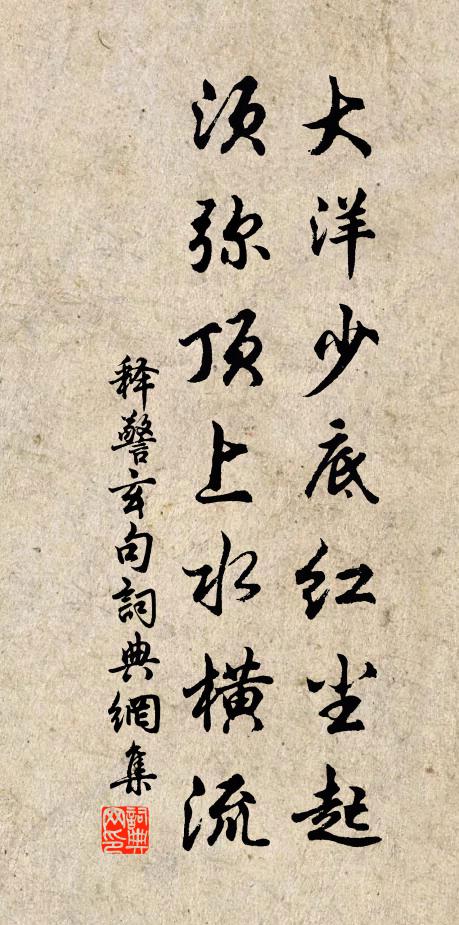 大洋少底红尘起
须弥顶上水横流
释警玄句词典網集
詞典网印